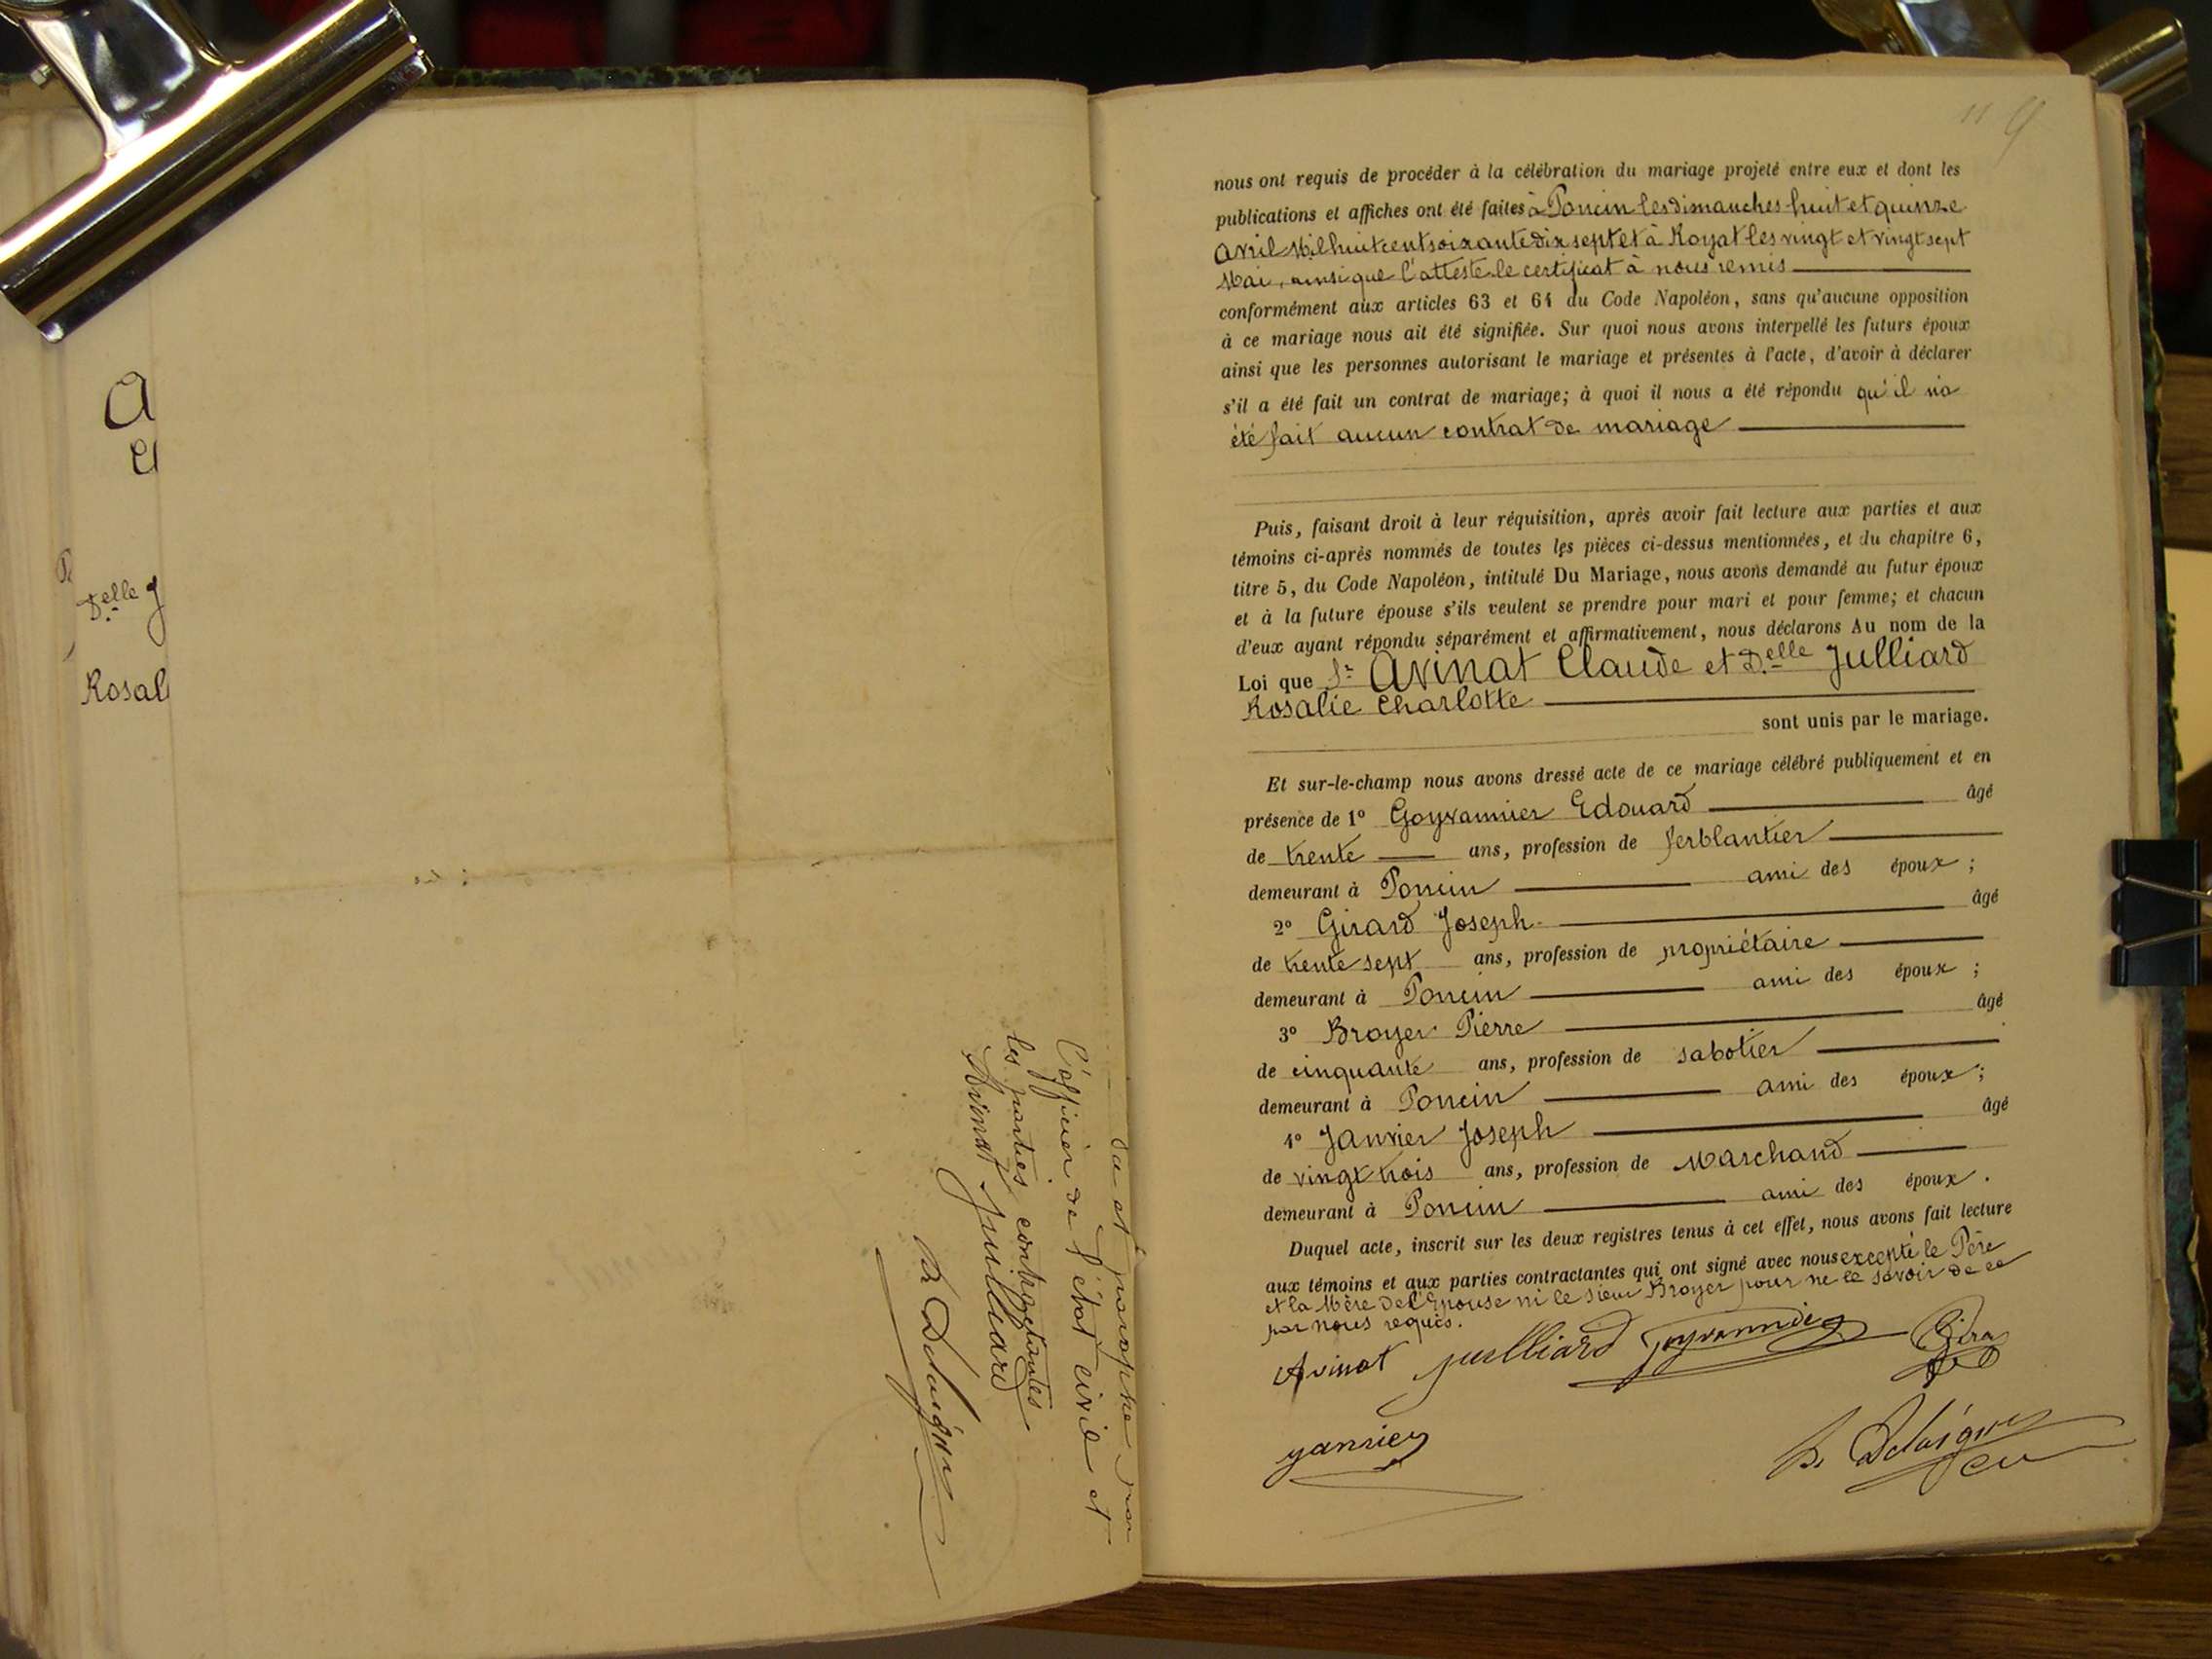 A
Delle J
Rosal
Vu et paraphé par
l'officier de l'état civil et
les parties contractantes
Avinat Juilliard
Delaigue
9
nous ont requis de procéder à la célébration du mariage projeté entre eux et dont les
publications et affiches ont été faites à Poncin les dimanches huit et quinze
Avril Mil huit cent soixante dix sept et à Royat les vingt et vingt sept
Mai, ainsi que l'atteste le certificat à nous remis
conformément aux articles 63 et 64 du Code Napoléon, sans qu'aucune opposition
à ce mariage nous ait été signifiée. Sur quoi nous avons interpellé les futurs époux
ainsi que les personnes autorisant le mariage et présentes à l'acte, d'avoir à déclarer
s'il a été fait un contrat de mariage; à quoi il nous a été répondu qu'il n'a
été fait aucun contrat de mariage
Puis, faisant droit à leur réquisition, après avoir fait lecture aux parties et aux
témoins ci-après nommés de toutes les pièces ci-dessus mentionnées, et du chapitre 6,
titre 5, du Code Napoléon, intitulé Du Mariage, nous avons demandé au futur époux
et à la future épouse s'ils veulent se prendre pour mari et pour femme; et chacun
d'eux ayant répondu séparément et affirmativement, nous déclarons Au nom de la
Loi que Sr Avinat Claude et Delle Julliard
Rosalie Charlotte
sont unis par le mariage.
Et sur-le-champ nous avons dressé acte de ce mariage célébré publiquement et en
présence de 1° Goyvannier Edouard âgé
de trente ans, profession de ferblantier
demeurant à Poncin ami des époux;
2° Girard Joseph âgé
de trente sept ans, profession de propriétaire
demeurant à Poncin ami des époux;
3° Broyer Pierre âgé
de cinquante ans, profession de sabotier
demeurant à Poncin ami des époux;
4° Janvier Joseph âgé
de vingt trois ans, profession de Marchand
demeurant à Poncin ami des époux.
Duquel acte, inscrit sur les deux registres tenus à cet effet, nous avons fait lecture
aux témoins et aux parties contractantes qui ont signé avec nous excepté le Père
et la Mère de l'Epouse ni le sieur Broyer pour ne le savoir de ce
par nous requis.
Avinat Juilliard Goyvannier Girard
Janvier Delaigue